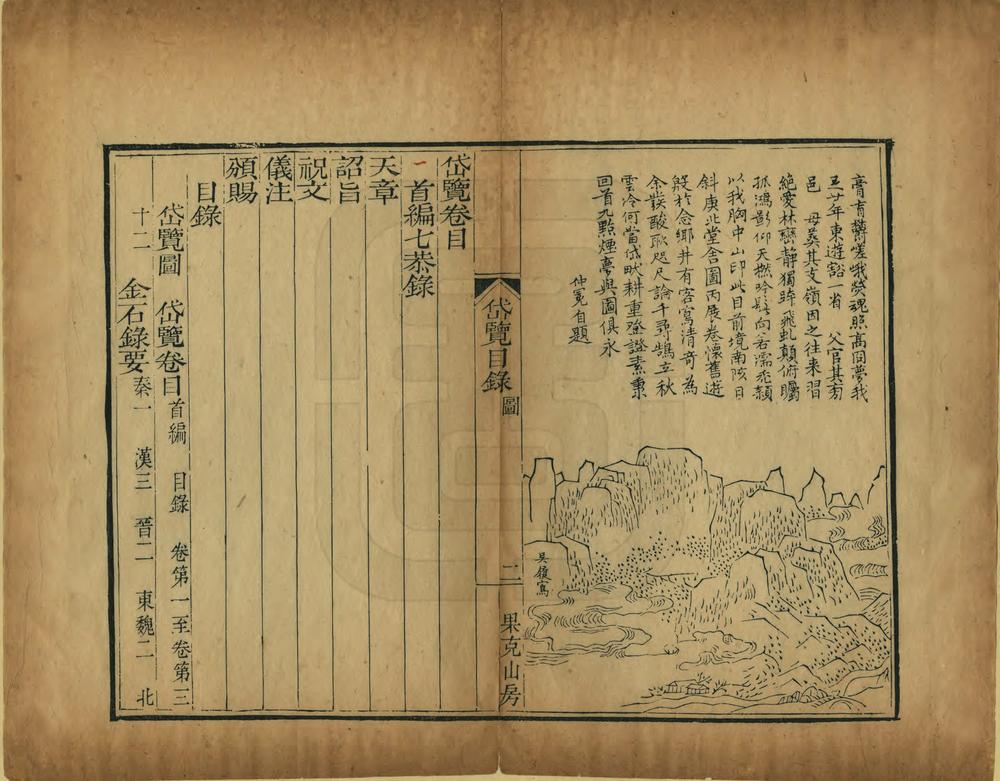 膏肓鬱嗟哦熒魂照高回夢我
五廿年東遊豁一省　父官其旁
邑　母葬其支嶺因之往来習
絕愛林巒靜獨跨飛虬顛俯矚
孤鴻影仰天撚吟髭向若濡禿穎
以我胸中山印此目前境南陔日
斜庚北堂舍圖丙展卷懷舊遊
般於念鄉井有客寫清奇為
余發酸耿咫尺論千尋鵠立秋
雲冷何當岱畎耕重登證素秉
回首九點煙夢與圖俱永
仲冕自題
吳履寫
岱覽目錄
圖
二
果克山房
岱覽卷目
首編七恭錄
天章
詔旨
祝文
儀注
頒賜
目錄
岱覽圖　岱覽卷目首編　目錄　卷第一至卷第三
十二　金石錄要秦一　漢三　晉二　東魏二　北